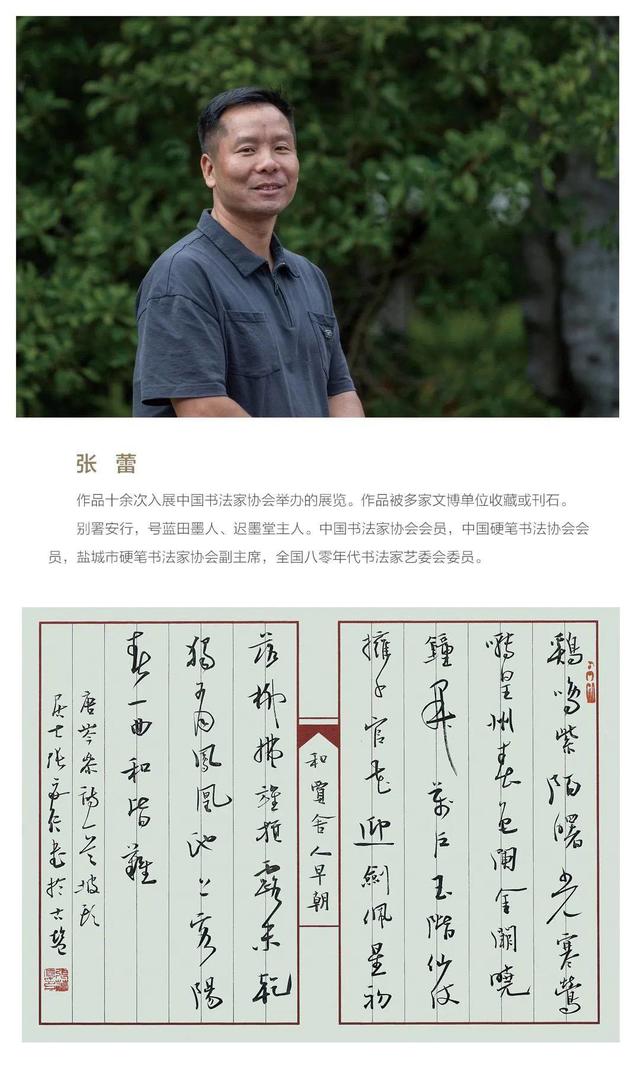 张 蕾
作品十余次入展中国书法家协会举办的展览。作品被多家文博单位收藏或刊石。
别署安行，号蓝田墨人、迟墨堂主人。中国书法家协会会员，中国硬笔书法协会会
员，盐城市硬笔书法家协会副主席，全国八零年代书法家艺委会委员。
鷄鳴紫陌曙光寒鶯
囀皇州春色闌金闕曉
鐘開萬户玉階仙仗
擁千官花迎劍佩星初
和賈舍人早朝
落柳拂旌旗露未乾
獨有鳳凰池上客陽
春一曲和皆難
唐岑參詩一首
居士張安行書於古鹽